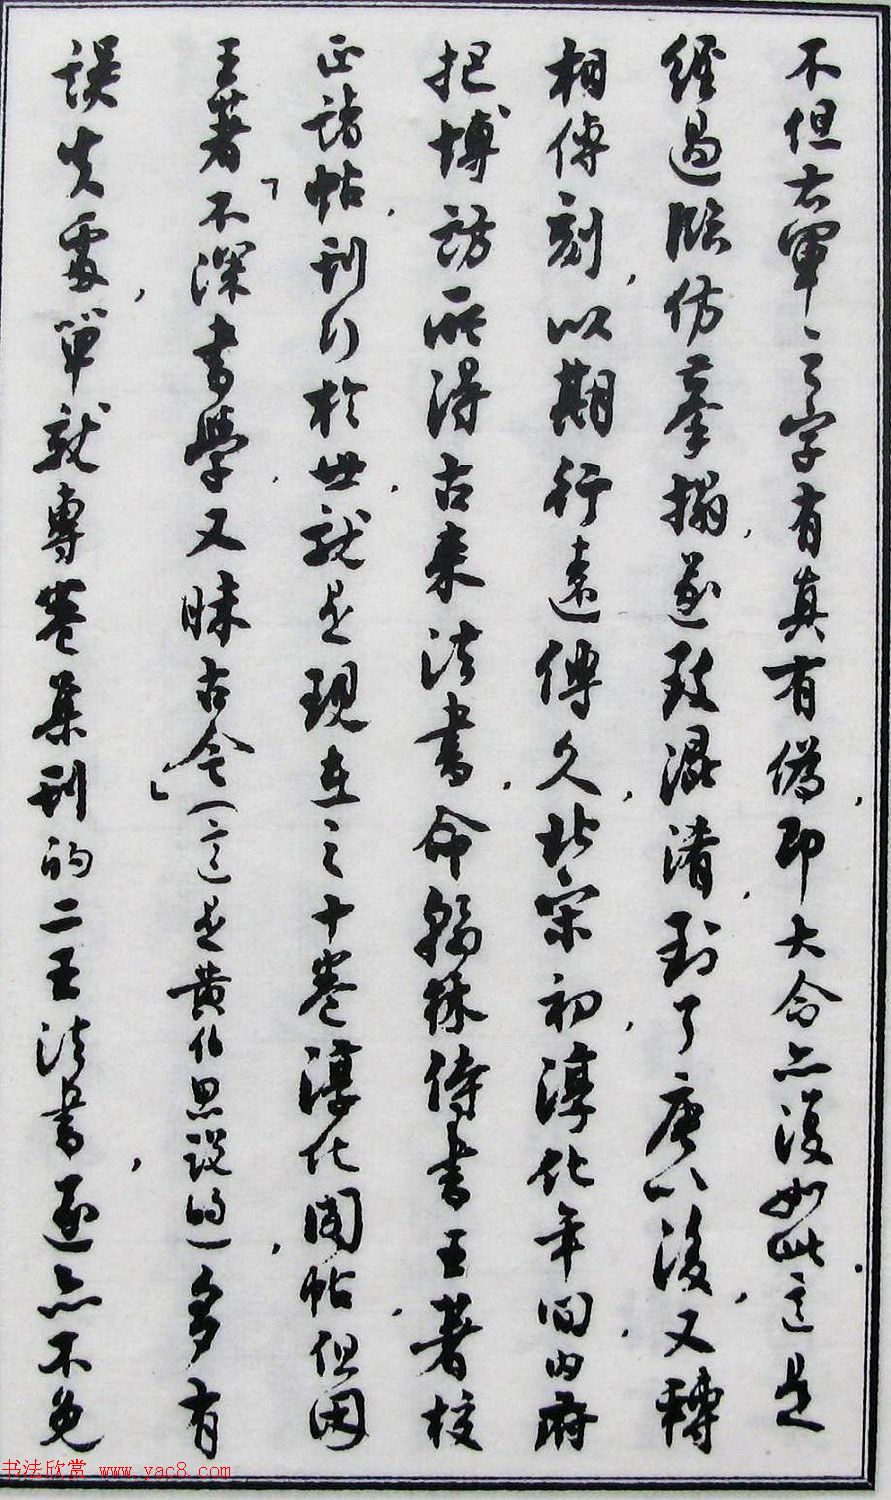 不但右軍之字有真有偽，即大令亦復如此。這是
經過臨仿摹搨，遂致混淆，到了唐以後，又轉
相傳刻，以期行遠傳久，北宋初，淳化年间，内府
把博訪所得古来法書，命翰林侍書王著校
正諸帖，刊行於世，就是現在之十卷淳化閣帖，但因
王著「不深書學，又昧古今」（這是黄伯思説的），多有
誤失處，單就專卷集刊的二王法書，遂亦不免
书法欣赏 www.yac8.com